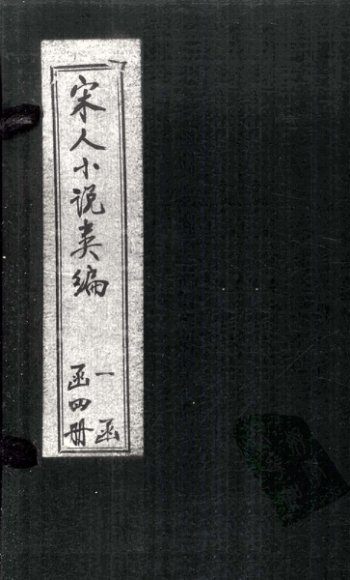 宋人小说类编
一函
函四册